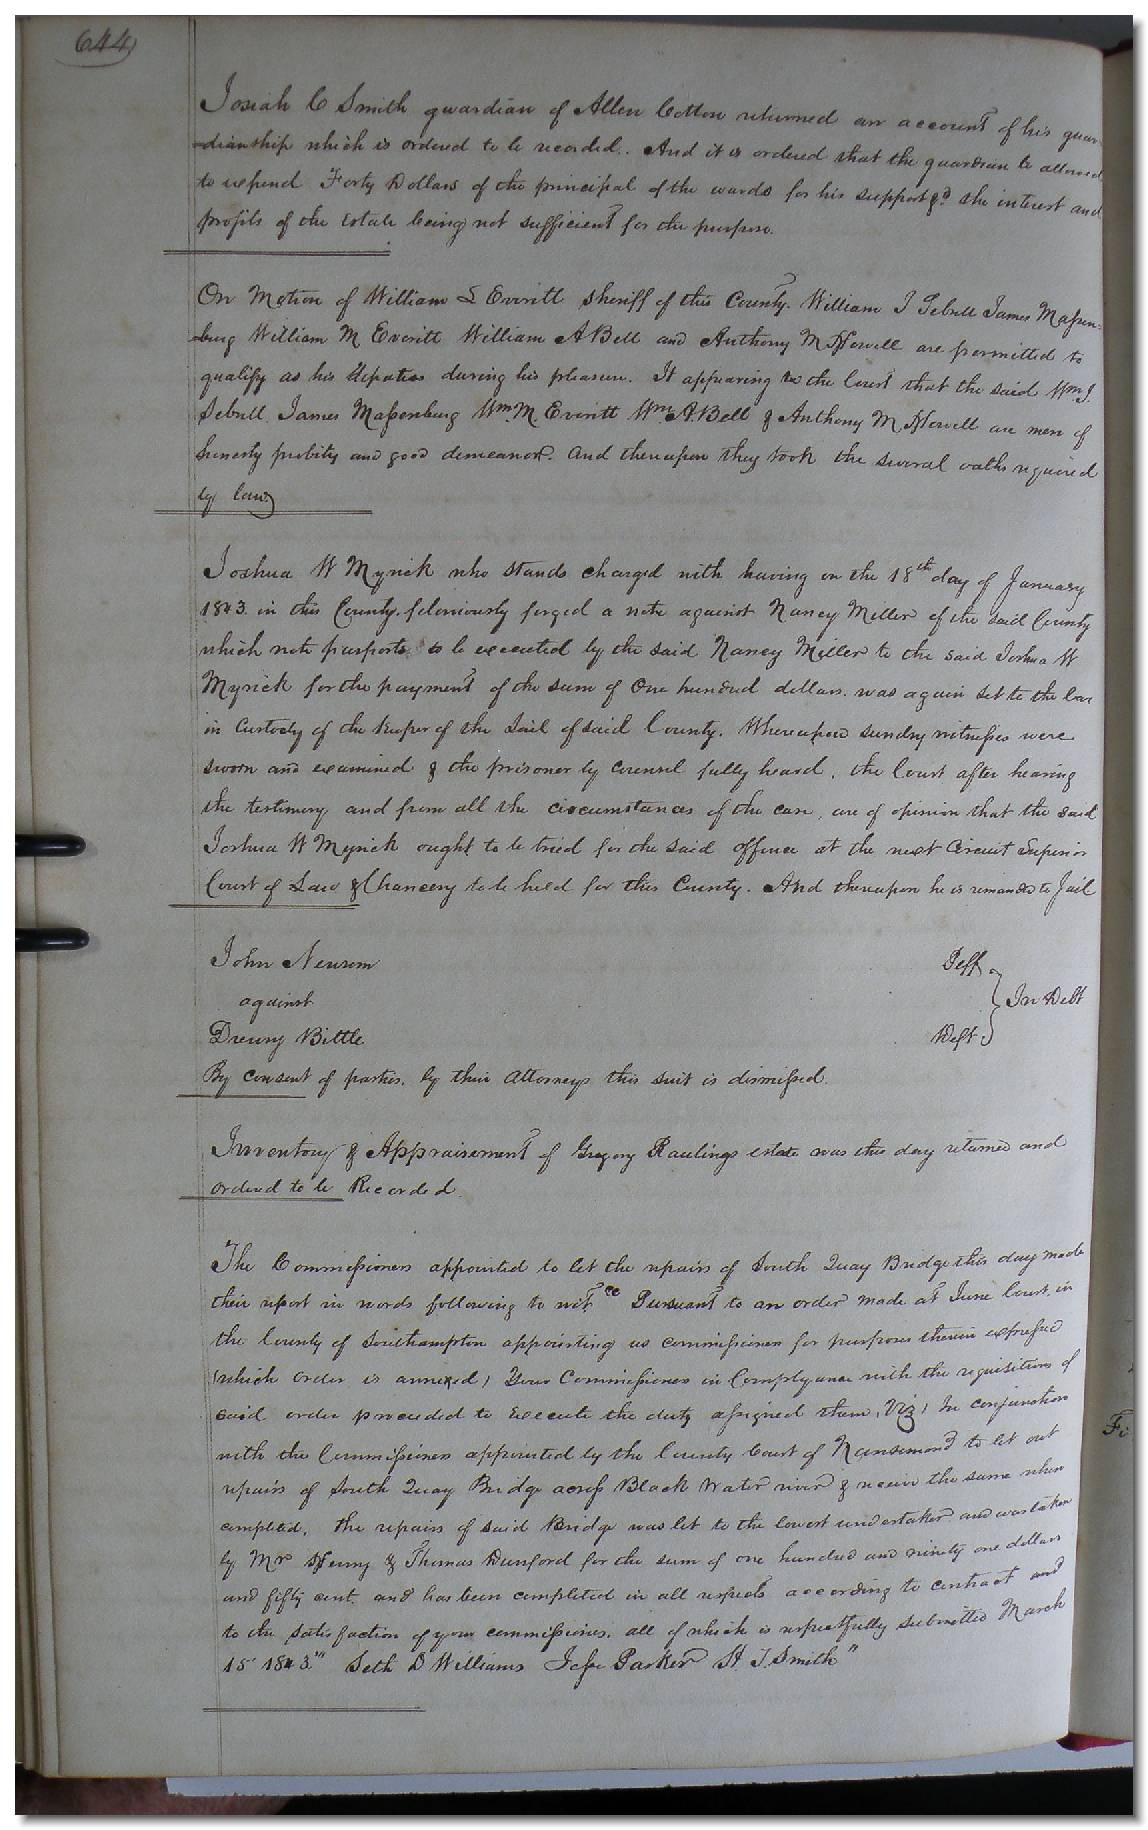 644
Josiah C Smith guardian of Allen Cotton returned an account of his guar-
-dianship which is ordered to be recorded. And it is ordered that the guardian be allowed
to expend Forty Dollars of the principal of the wards for his support &c the interest and
profits of the estate being not sufficient for the purpose.
On Motion of William L Everitt Sheriff of this County. William J Sebrell James Massen-
-burg William M Everitt William A Bell and Anthony M Howell are permitted to
qualify as his deputies during his pleasure. It appearing to the Court that the said Wm J.
Sebrell James Massenburg Wm M. Everitt Wm A. Bell & Anthony M Howell are men of
honesty probity and good demeanor. And thereupon they took the several oaths required
by law
Joshua W Myrick who stands charged with having on the 18th day of January
1843. in this County feloniously forged a note against Nancy Miller of the said County
which note purports to be executed by the said Nancy Miller to the said Joshua W
Myrick for the payment of the sum of One hundred dollars. was again set to the bar
in Custody of the keeper of the Jail of said County. Whereupon sundry witnesses were
sworn and examined & the prisoner by counsel fully heard, the Court after hearing
the testimony and from all the circumstances of the case, are of opinion that the said
Joshua W Myrick ought to be tried for the said offence at the next Circuit Superior
Court of Law & Chancery to be held for this County. And thereupon he is remanded to Jail
John Newsom Plff
against In Debt
Drewry Bittle Deft
By consent of parties, by their Attorneys this suit is dismissed.
Inventory & Appraisement of Gregory Rawlings estate was this day returned and
ordered to be Recorded
The Commissioners appointed to let the repairs of South Quay Bridge this day made
their report in words following to wit "Pursuant to an order made at June Court, in
the County of Southampton appointing us commissioners for purposes therein expressed
(which order is annexed) Your Commissioners in Complyance with the requisitions of
said order proceeded to execute the duty assigned them, (Viz) In conjunction
with the Commissioners appointed by the County Court of Nansemond to let out
repairs of South Quay Bridge across Black Water river & receive the same when
completed, the repairs of said Bridge was let to the lowest undertaker and was taken
by Mr Henry & Thomas Dunford for the sum of one hundred and ninety one dollars
and fifty cent. and has been completed in all respects according to contract and
to the satisfaction of your commissioners. all of which is respectfully submitted March
15 1843." Seth D Williams Jesse Parker H. T. Smith"